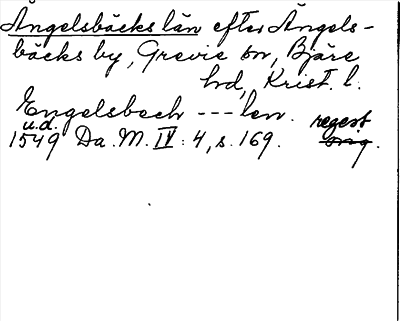 Ängelsbäcks län efter Ängels-
bäcks by, Grevie sn, Bjäre
hd, Krist. l.
Engelsbech --- len.
u.d. regest
1549 Da. M. IV: 4, s. 169. orig.